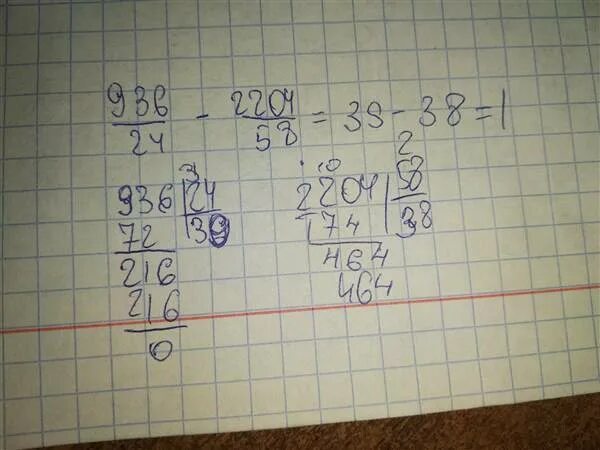 936/24 - 2204/58 = 39 - 38 = 1
936 | 24
72 | 39
216
216
0
2204 | 58
174 | 38
464
464